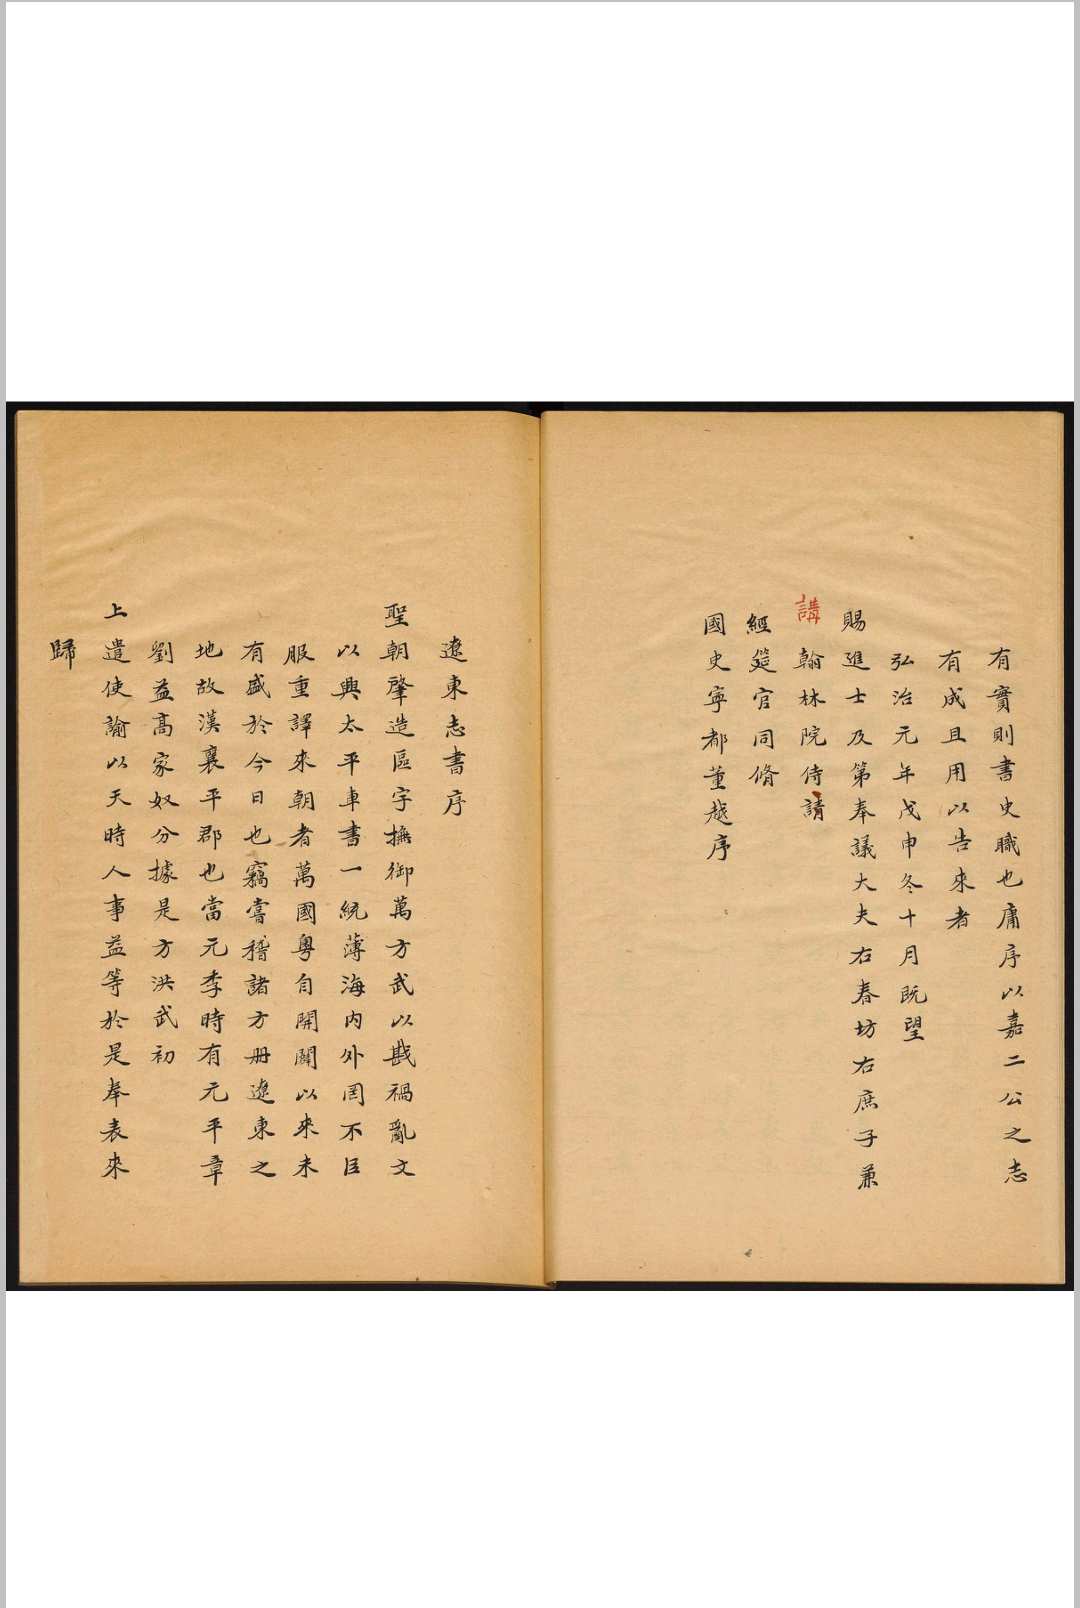 有實則書史職也庸序以嘉二公之志
有成且用以告來者
弘治元年戊申冬十月既望
賜進士及第奉議大夫右春坊右庶子兼
講
翰林院侍請
經筵官同脩
國史寧都董越序
遼東志書序
聖朝肇造區宇撫御萬方武以戡禍亂文
以興太平車書一統薄海內外罔不臣
服重譯來朝者萬國粵自開闢以來未
有盛於今日也竊嘗稽諸方册遼東之
地故漢襄平郡也當元季時有元平章
劉益高家奴分據是方洪武初
上遣使諭以天時人事益等於是奉表來
歸